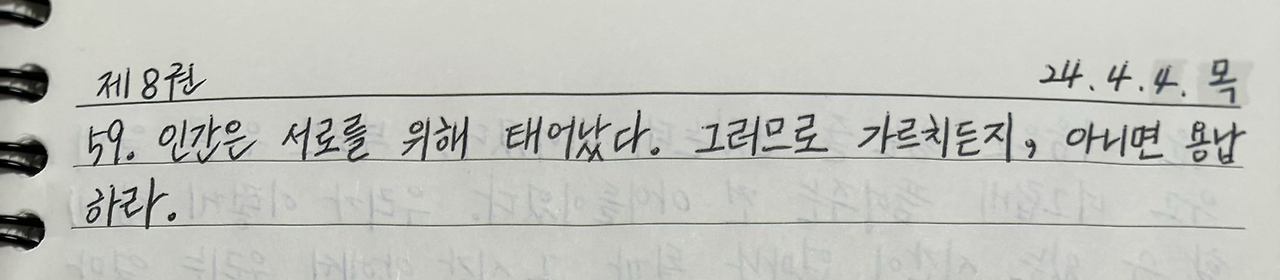 제 8권 24. 4. 4. 목
59. 인간은 서로를 위해 태어났다. 그러므로 가르치든지, 아니면 용납
하라.